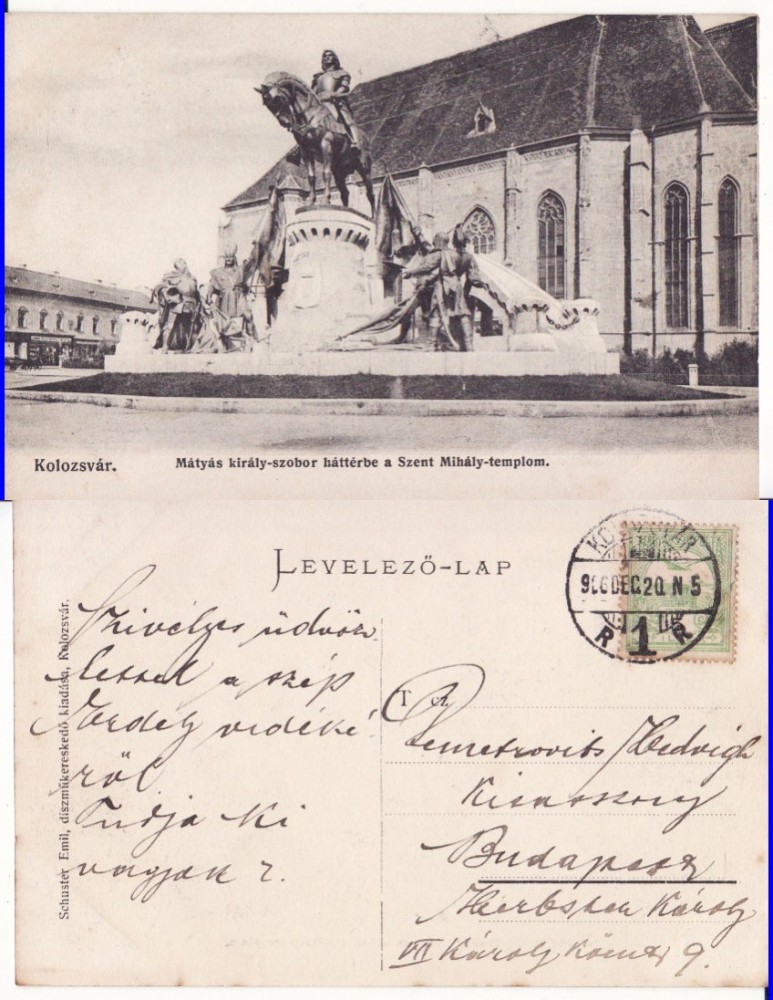 Kolozsvár. Mátyás király-szobor háttérbe a Szent Mihály-templom.
LEVELEZŐ-LAP
Schuster Emil, díszműkereskedő kiadása, Kolozsvár.
KOLOZSVÁR
906 DEC. 20. N 5
R 1 R
Szivélyes üdvöz
lettel a szép
Erdély vidéké
ről
Tudja ki
vagyok ?
T. cz.
Demetrovits Hedvigh
Kisasszony
Budapest
Károly
VII Károly 9.